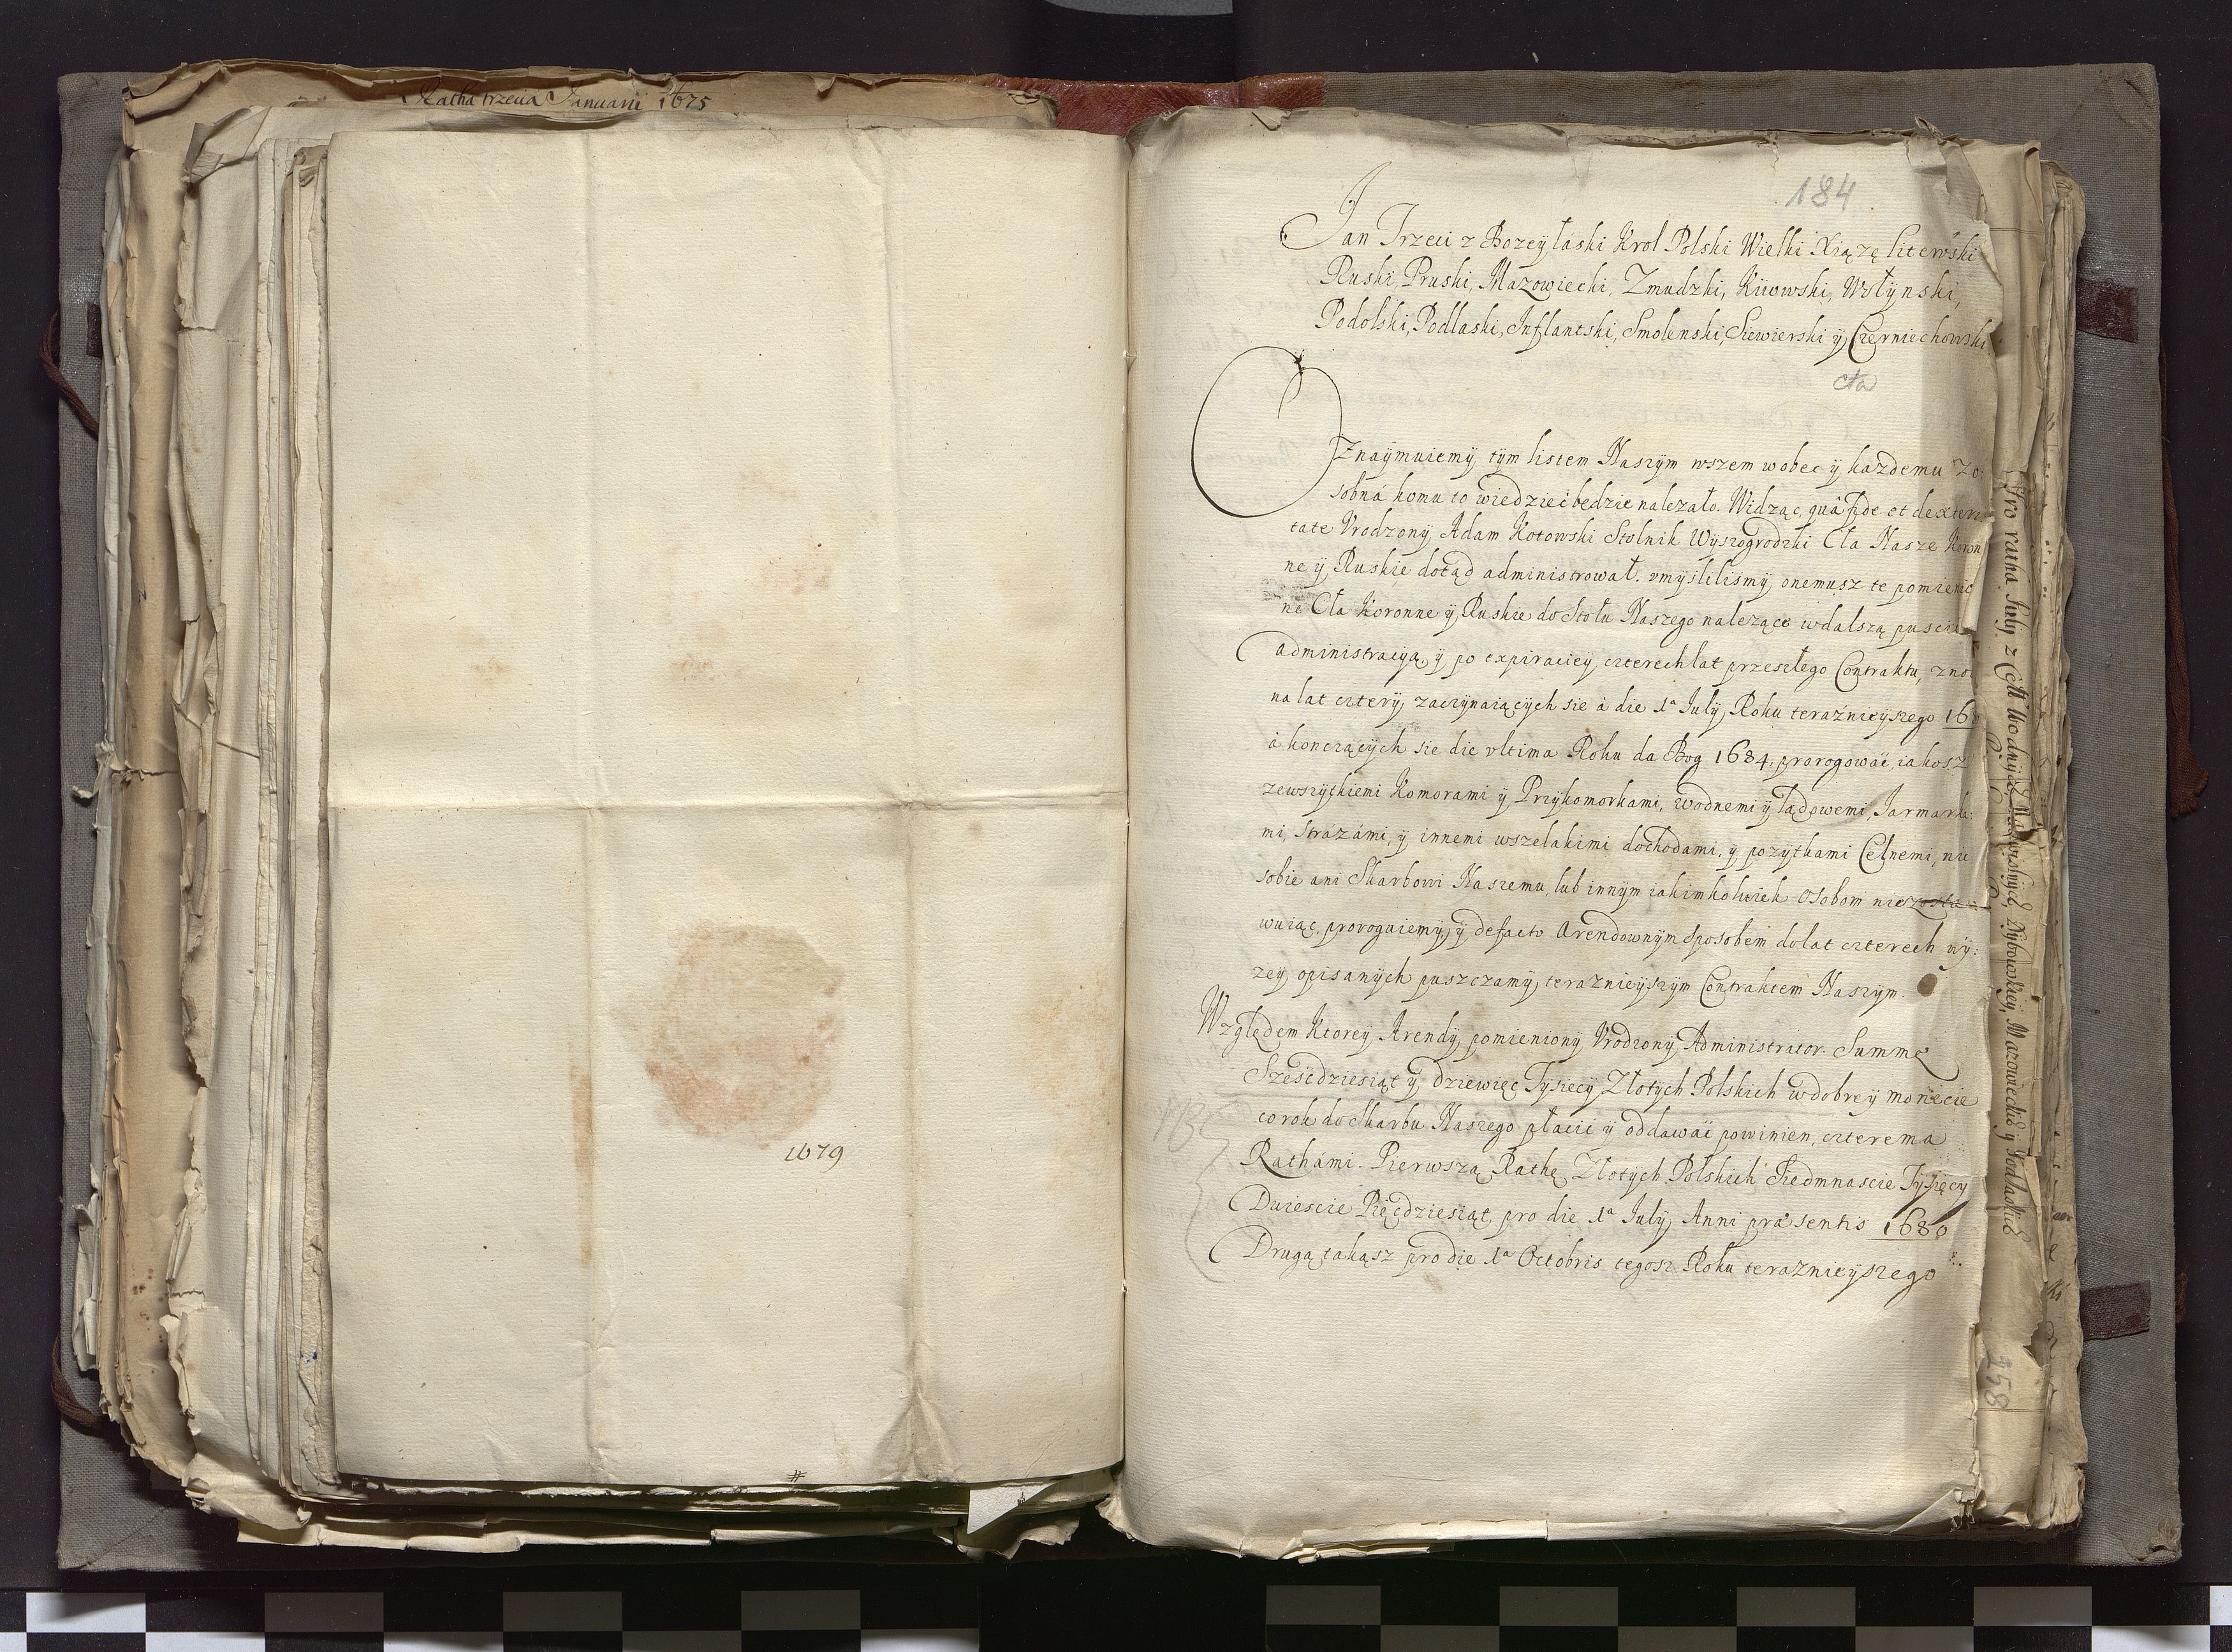 Ratha trzecia Januarii 1675
1679
184
Jan Trzeci z Bozeÿ łaski Krol Polski Wielki Xiązę Litewski
Ruski, Pruski, Mazowiecki, Zmudzki, Kiiowski, Wołÿnski,
Podolski, Podlaski, Inflantski, Smolenski, Siewierski ÿ Czerniechowski
Cła
Oznaÿmuiemÿ tÿm listem Naszÿm wszem wobec ÿ kazdemu zo
sobná komu to wiedziec będzie nalezało. Widząc, quâ fide et dexteri
tate Vrodzonÿ Adam Kotowski Stolnik Wÿszogrodzki Cła Nasze Koron
ne ÿ Ruskie dotąd administrował. vmÿslilismÿ onemusz te pomienio
ne Cła Koronne ÿ Ruskie do Stołu Naszego nalezące w dalszą puscic
administracÿą, ÿ po expiracieÿ czterech lat przeszłego Contraktu, zno
na lat czterÿ, zaczÿnaiącÿch sie à die 1ª Julÿ Roku teraźnieÿszego 16
à konczącÿch sie die vltima Roku da Bog 1684. prorogowáć, iakosz
zewszÿtkiemi Komorami ÿ Przÿkomorkami, wodnemi ÿ lądowemi, Jarmarka:
mi, strázámi, ÿ innemi wszelakimi dochodami, ÿ pozÿtkami Celnemi, nic
sobie ani Skarbowi Naszemu, lub innÿm iakimkolwiek osobom niezosta=
wuiąc, proroguiemÿ, ÿ defacto Arendownÿm sposobem do lat czterech wÿ:
zeÿ opisanÿch puszczamÿ, teraznieÿszÿm Contraktem Naszÿm.
Względem Ktoreÿ Arendÿ, pomienionÿ Vrodzonÿ Administrator Summę
Szescdziesiąt ÿ dziewięc Tÿsięcÿ Złotÿch Polskich w dobreÿ monecie
co rok do Skarbu Naszego płacić ÿ oddawać powinien, czterema
Rathámi. Pierwszą Rathę Złotÿch Polskich Siedmnascie Tÿsięcÿ
Dwiescie Pięcdziesiąt, pro die 1ª Julÿ Anni præsentis 1680
Drugą takąsz pro die 1ª Octobris tegosz Roku teraznieÿszego
NB
Pro ratha Julÿ z Cełł Wodnÿch
Mazowieckich ÿ Podlaskich
258